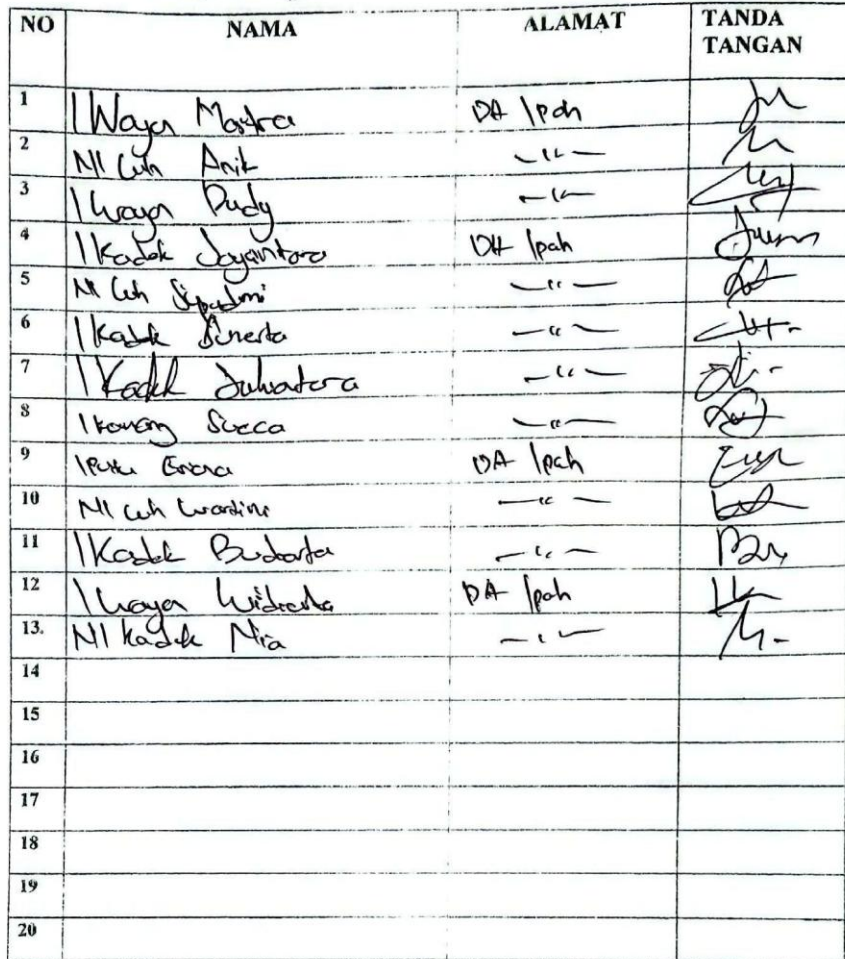 NO NAMA ALAMAT TANDA TANGAN
1 I Wayan Mastra DA Ipah
2 NI Luh Anik —"—
3 I Wayan Dudy —"—
4 I Kadek Jayantara DA Ipah
5 NI Luh —"—
6 I Kadek Sunerta —"—
7 I Kadek Juliantara —"—
8 I Komang Sueca —"—
9 I Putu DA Ipah
10 NI Luh Wardini —"—
11 I Kadek Budiarta —"—
12 I Wayan Widiarta DA Ipah
13. NI Kadek Nia —"—
14
15
16
17
18
19
20